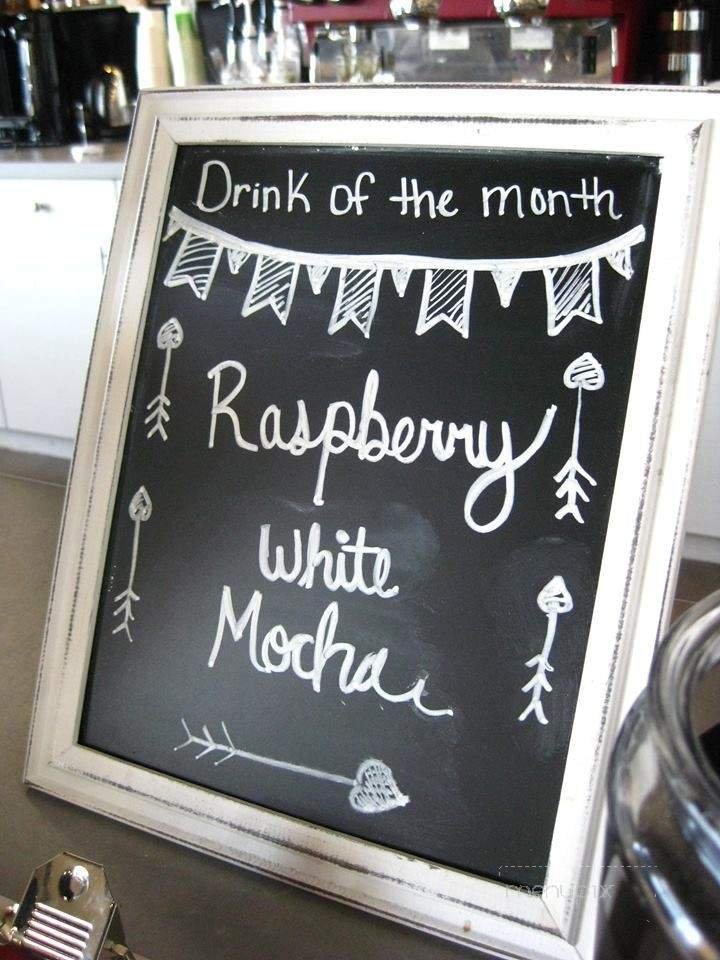 Drink of the month
Raspberry
White
Mocha
menupix